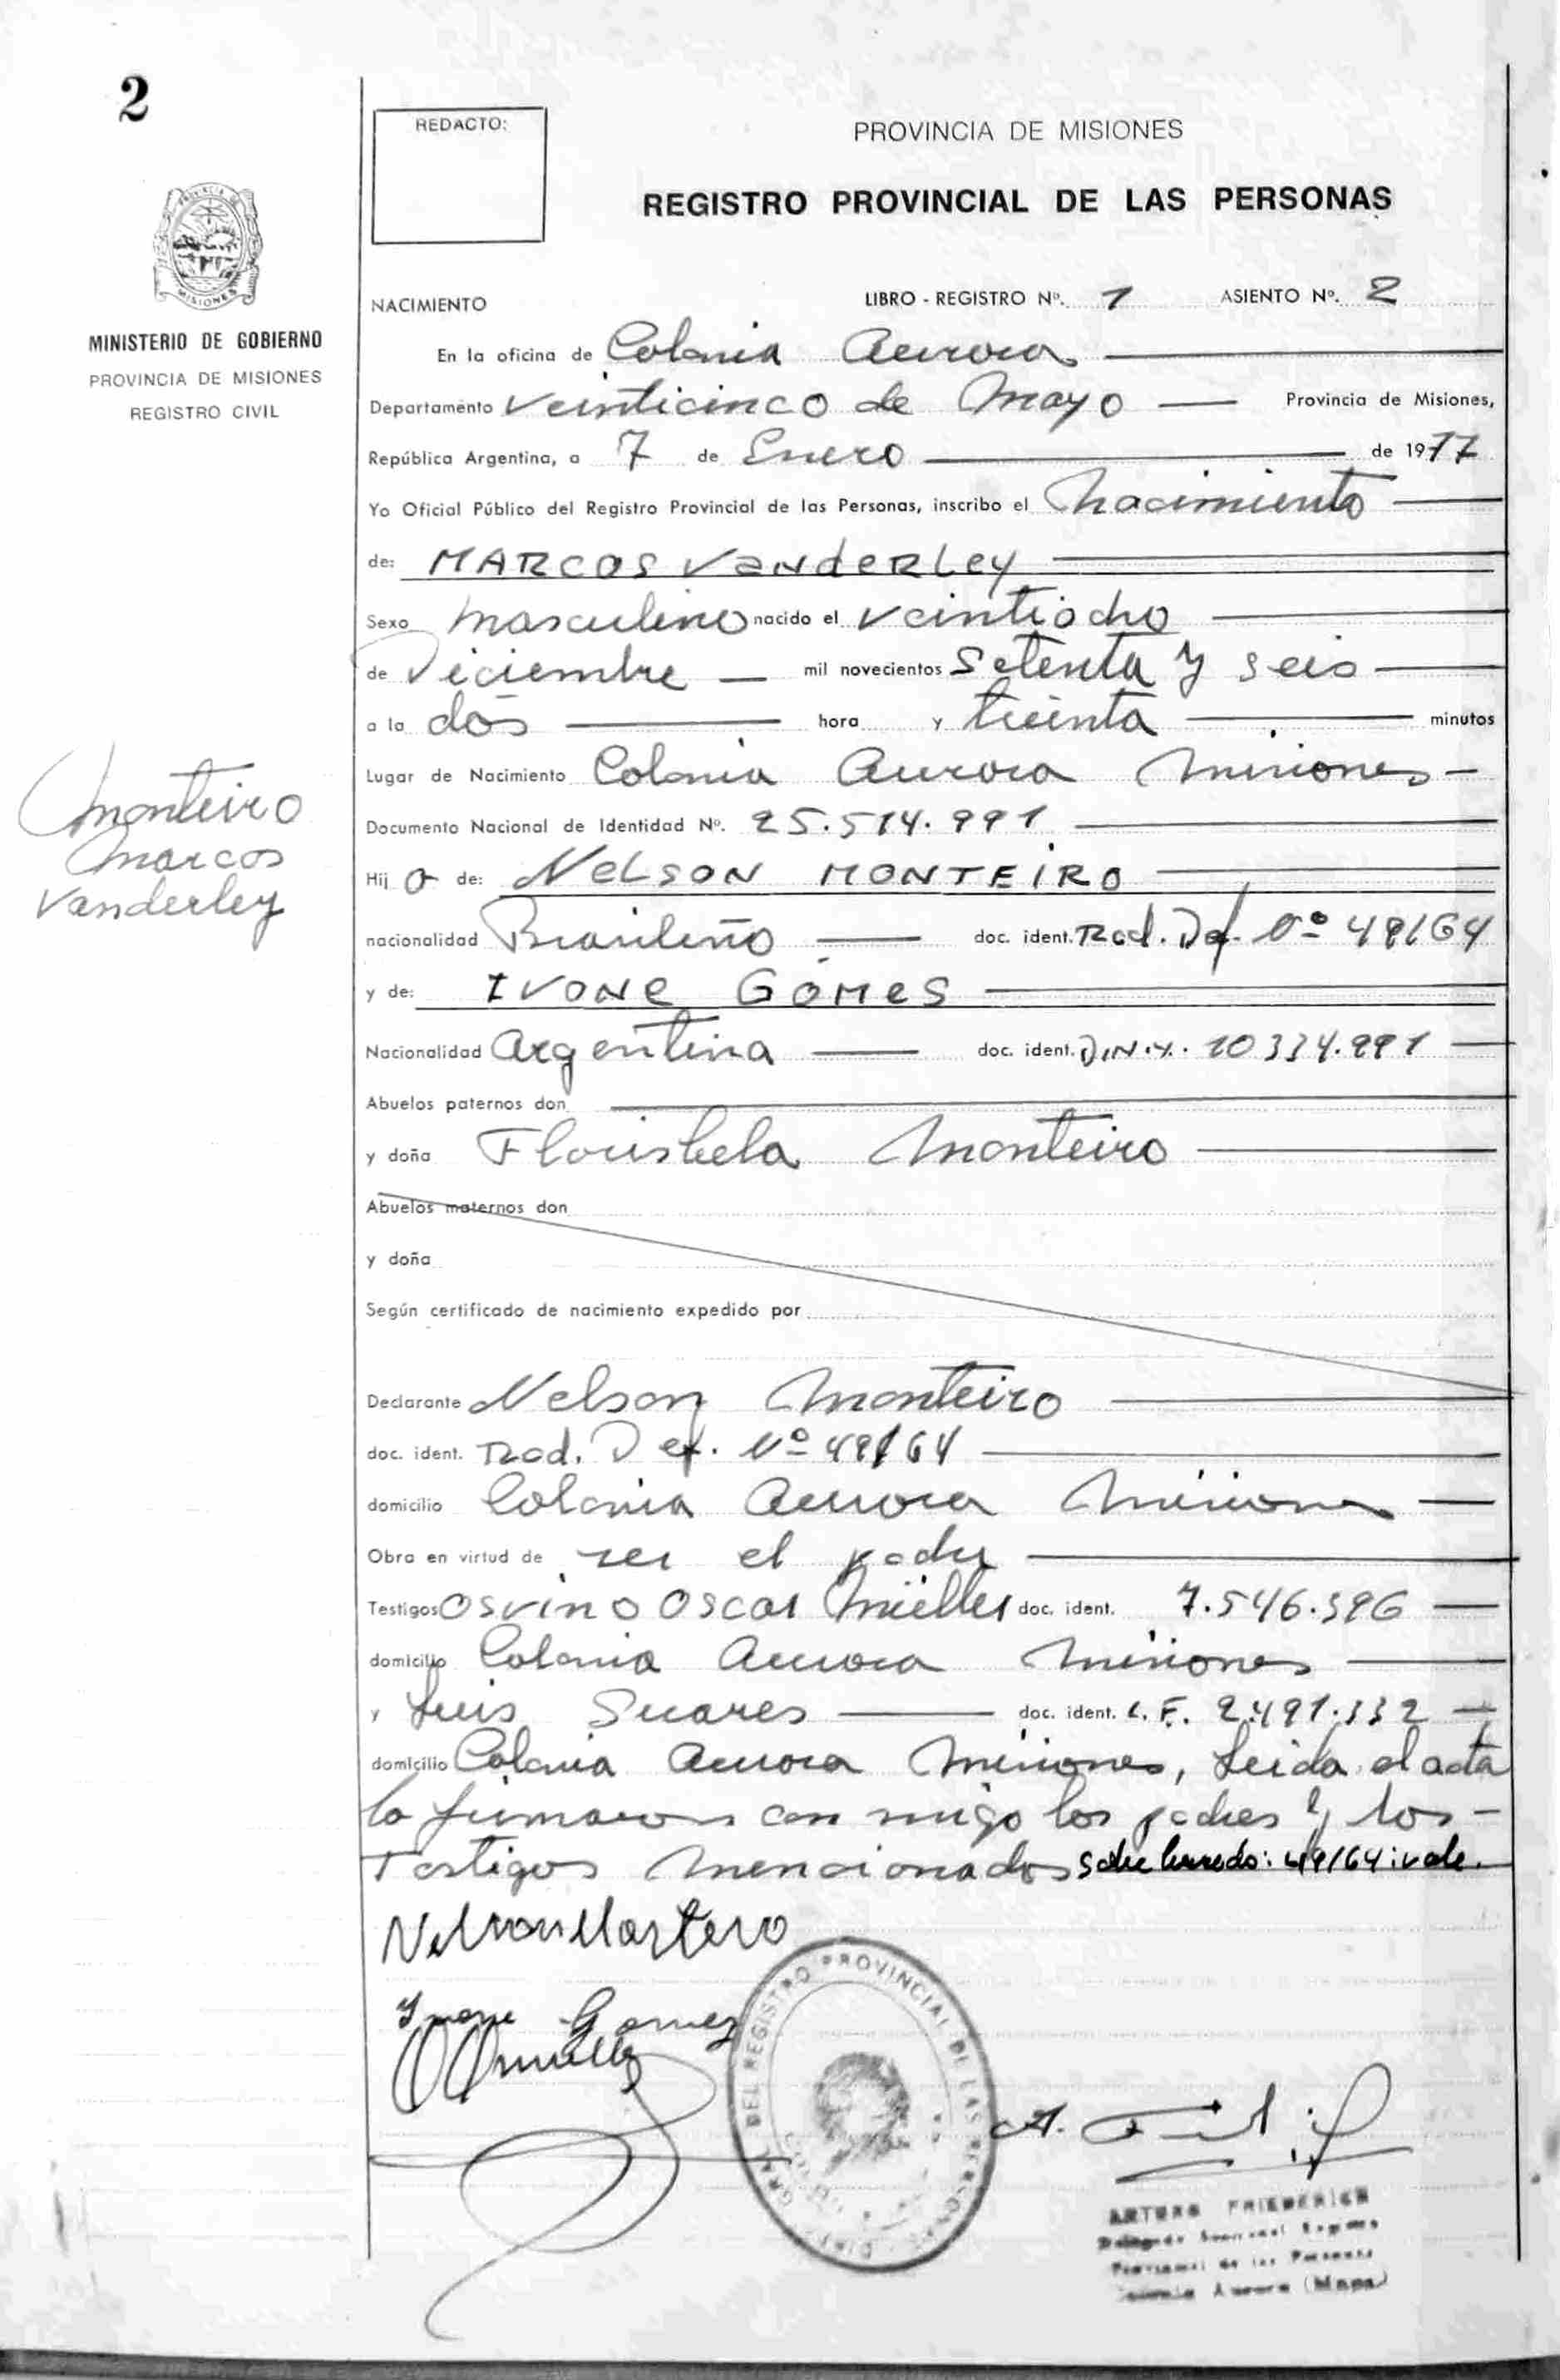 2
REDACTO:
PROVINCIA DE MISIONES
REGISTRO PROVINCIAL DE LAS PERSONAS
MISIONES
MINISTERIO DE GOBIERNO
PROVINCIA DE MISIONES
REGISTRO CIVIL
NACIMIENTO LIBRO - REGISTRO Nº. 1 ASIENTO Nº. 2
En la oficina de Colonia Aurora
Departamento Veinticinco de Mayo Provincia de Misiones,
República Argentina, a 7 de Enero de 1977
Yo Oficial Público del Registro Provincial de las Personas, inscribo el Nacimiento
de: MARCOS VANDERLEY
Sexo masculino nacido el veintiocho
de Diciembre mil novecientos Setenta y seis
a la dos hora y treinta minutos
Lugar de Nacimiento Colonia Aurora Misiones
Monteiro
Marcos
Vanderley
Documento Nacional de Identidad Nº. 25.514.991
Hij o de: NELSON MONTEIRO
nacionalidad Brasileño doc. ident. Rad. Def. Nº 49/64
y de: IVONE GOMES
Nacionalidad Argentina doc. ident. D.N.Y. 10334.991
Abuelos paternos don
y doña Florisbela Monteiro
Abuelos maternos don
y doña
Según certificado de nacimiento expedido por
Declarante Nelson Monteiro
doc. ident. Rad. Def. Nº 49/64
domicilio Colonia Aurora Misiones
Obra en virtud de ser el padre
Testigos Osvino Oscar Müller doc. ident. 7.546.396
domicilio Colonia Aurora Misiones
y Luis Suares doc. ident. L.E. 2.491.332
domicilio Colonia Aurora Misiones, Leida el acta
la firmaron con migo los padres y los
Testigos mencionados Sobre borrado: 49/64: vale.
Ivone Gomez
REGISTRO PROVINCIAL DE LAS PERSONAS
ARTURO FRIEDERICH
Delegado Seccional Registro
Provincial de las Personas
Colonia Aurora (Mnes.)